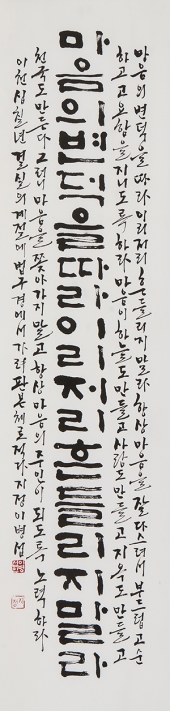 마음의 변덕을 따라 이리저리 흔들리지 말라
마음의 변덕을 따라 이리저리 흔들리지 말라 항상 마음을 잘 다스려서 부드럽고 순
하고 고요함을 지니도록 하라 마음이 하늘도 만들고 사람도 만들고 지옥도 만들고
천국도 만든다 그러니 마음을 쫓아가지 말고 항상 마음의 주인이 되도록 노력하라
이천십칠년 결실의 계절에 법구경에서 가려 판본체로 적다 지정 이병섭